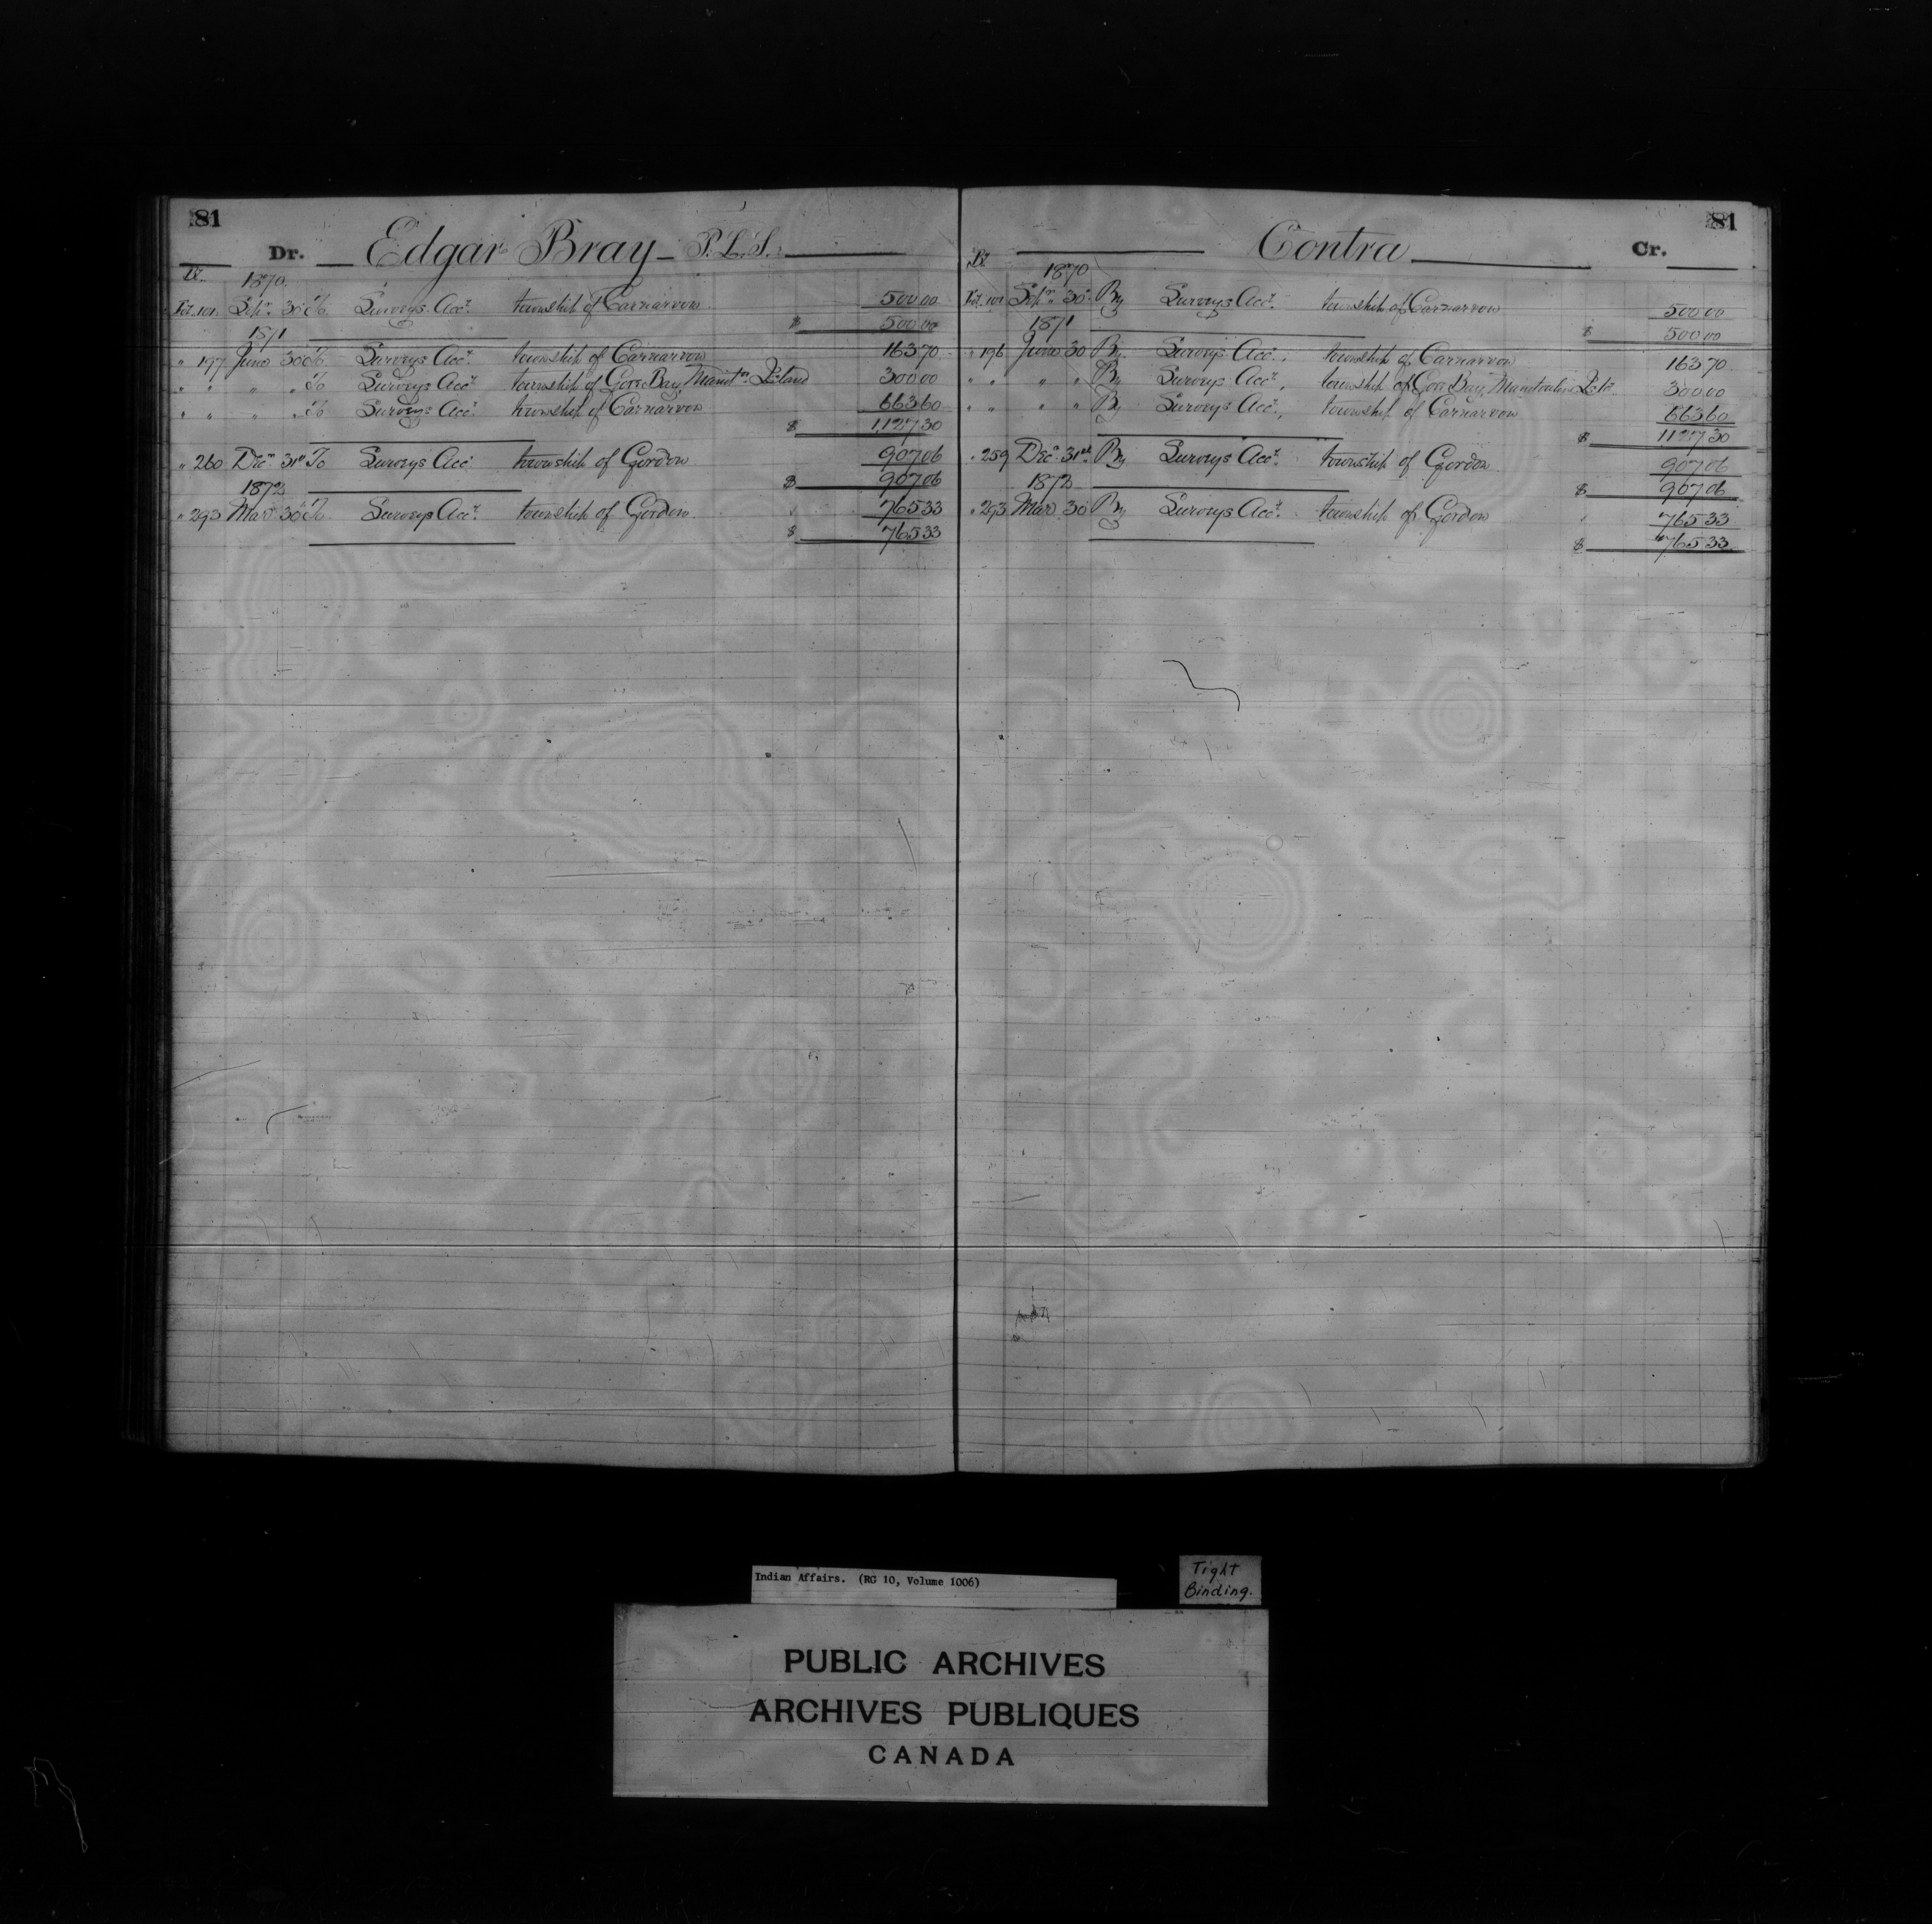 81
Dr. Edgar Bray P.L.S.
1870
Fol. 101. Sepr. 30 To Surveys Acct. township of Carnarvon 500 00
$ 500 00
1871
" 197 June 30 To Surveys Acct. township of Carnarvon 163 70
" " " " To Surveys Acct. township of Gore Bay, Manitn. Island 300 00
" " " " To Surveys Acct. township of Carnarvon 663 60
$ 1,127 30
" 260 Decr. 31st To Surveys Acct township of Gordon 907 06
$ 907 06
1872
" 293 Mar. 30 To Surveys Acct. township of Gordon 765 33
$ 765 33
81
Contra Cr.
1870
Fol. 101 Sepr. 30 By Surveys Acct. township of Carnarvon 500 00
$ 500 00
1871
" 196 June 30 By Surveys Acct. township of Carnarvon 163 70
" " " " By Surveys Acct. township of Gore Bay, Manitoulin Isld. 300 00
" " " " By Surveys Acct. township of Carnarvon 663 60
$ 1127 30
" 259 Decr. 31st By Surveys Acct. township of Gordon 907 06
$ 907 06
1872
" 293 Mar 30 By Surveys Acct. township of Gordon 765 33
$ 765 33
Indian Affairs. (RG 10, Volume 1006)
Tight
Binding.
PUBLIC ARCHIVES
ARCHIVES PUBLIQUES
CANADA